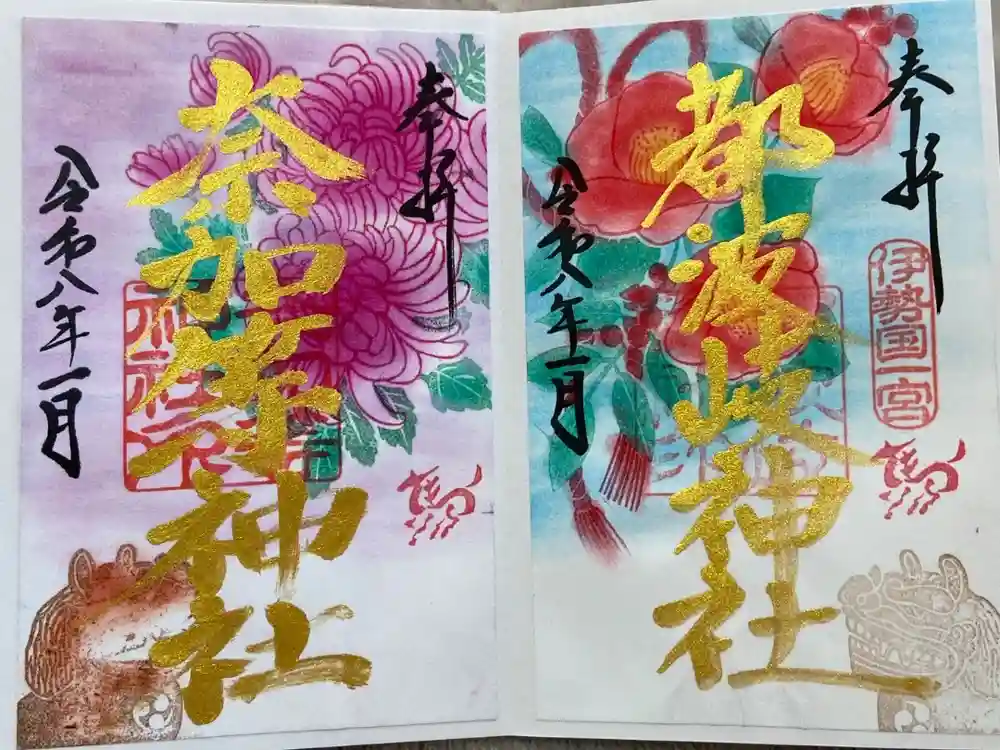 奉拝
伊勢国一宮
馬
都波岐神社
令和八年一月
奉拝
馬
奈加等神社
令和八年一月